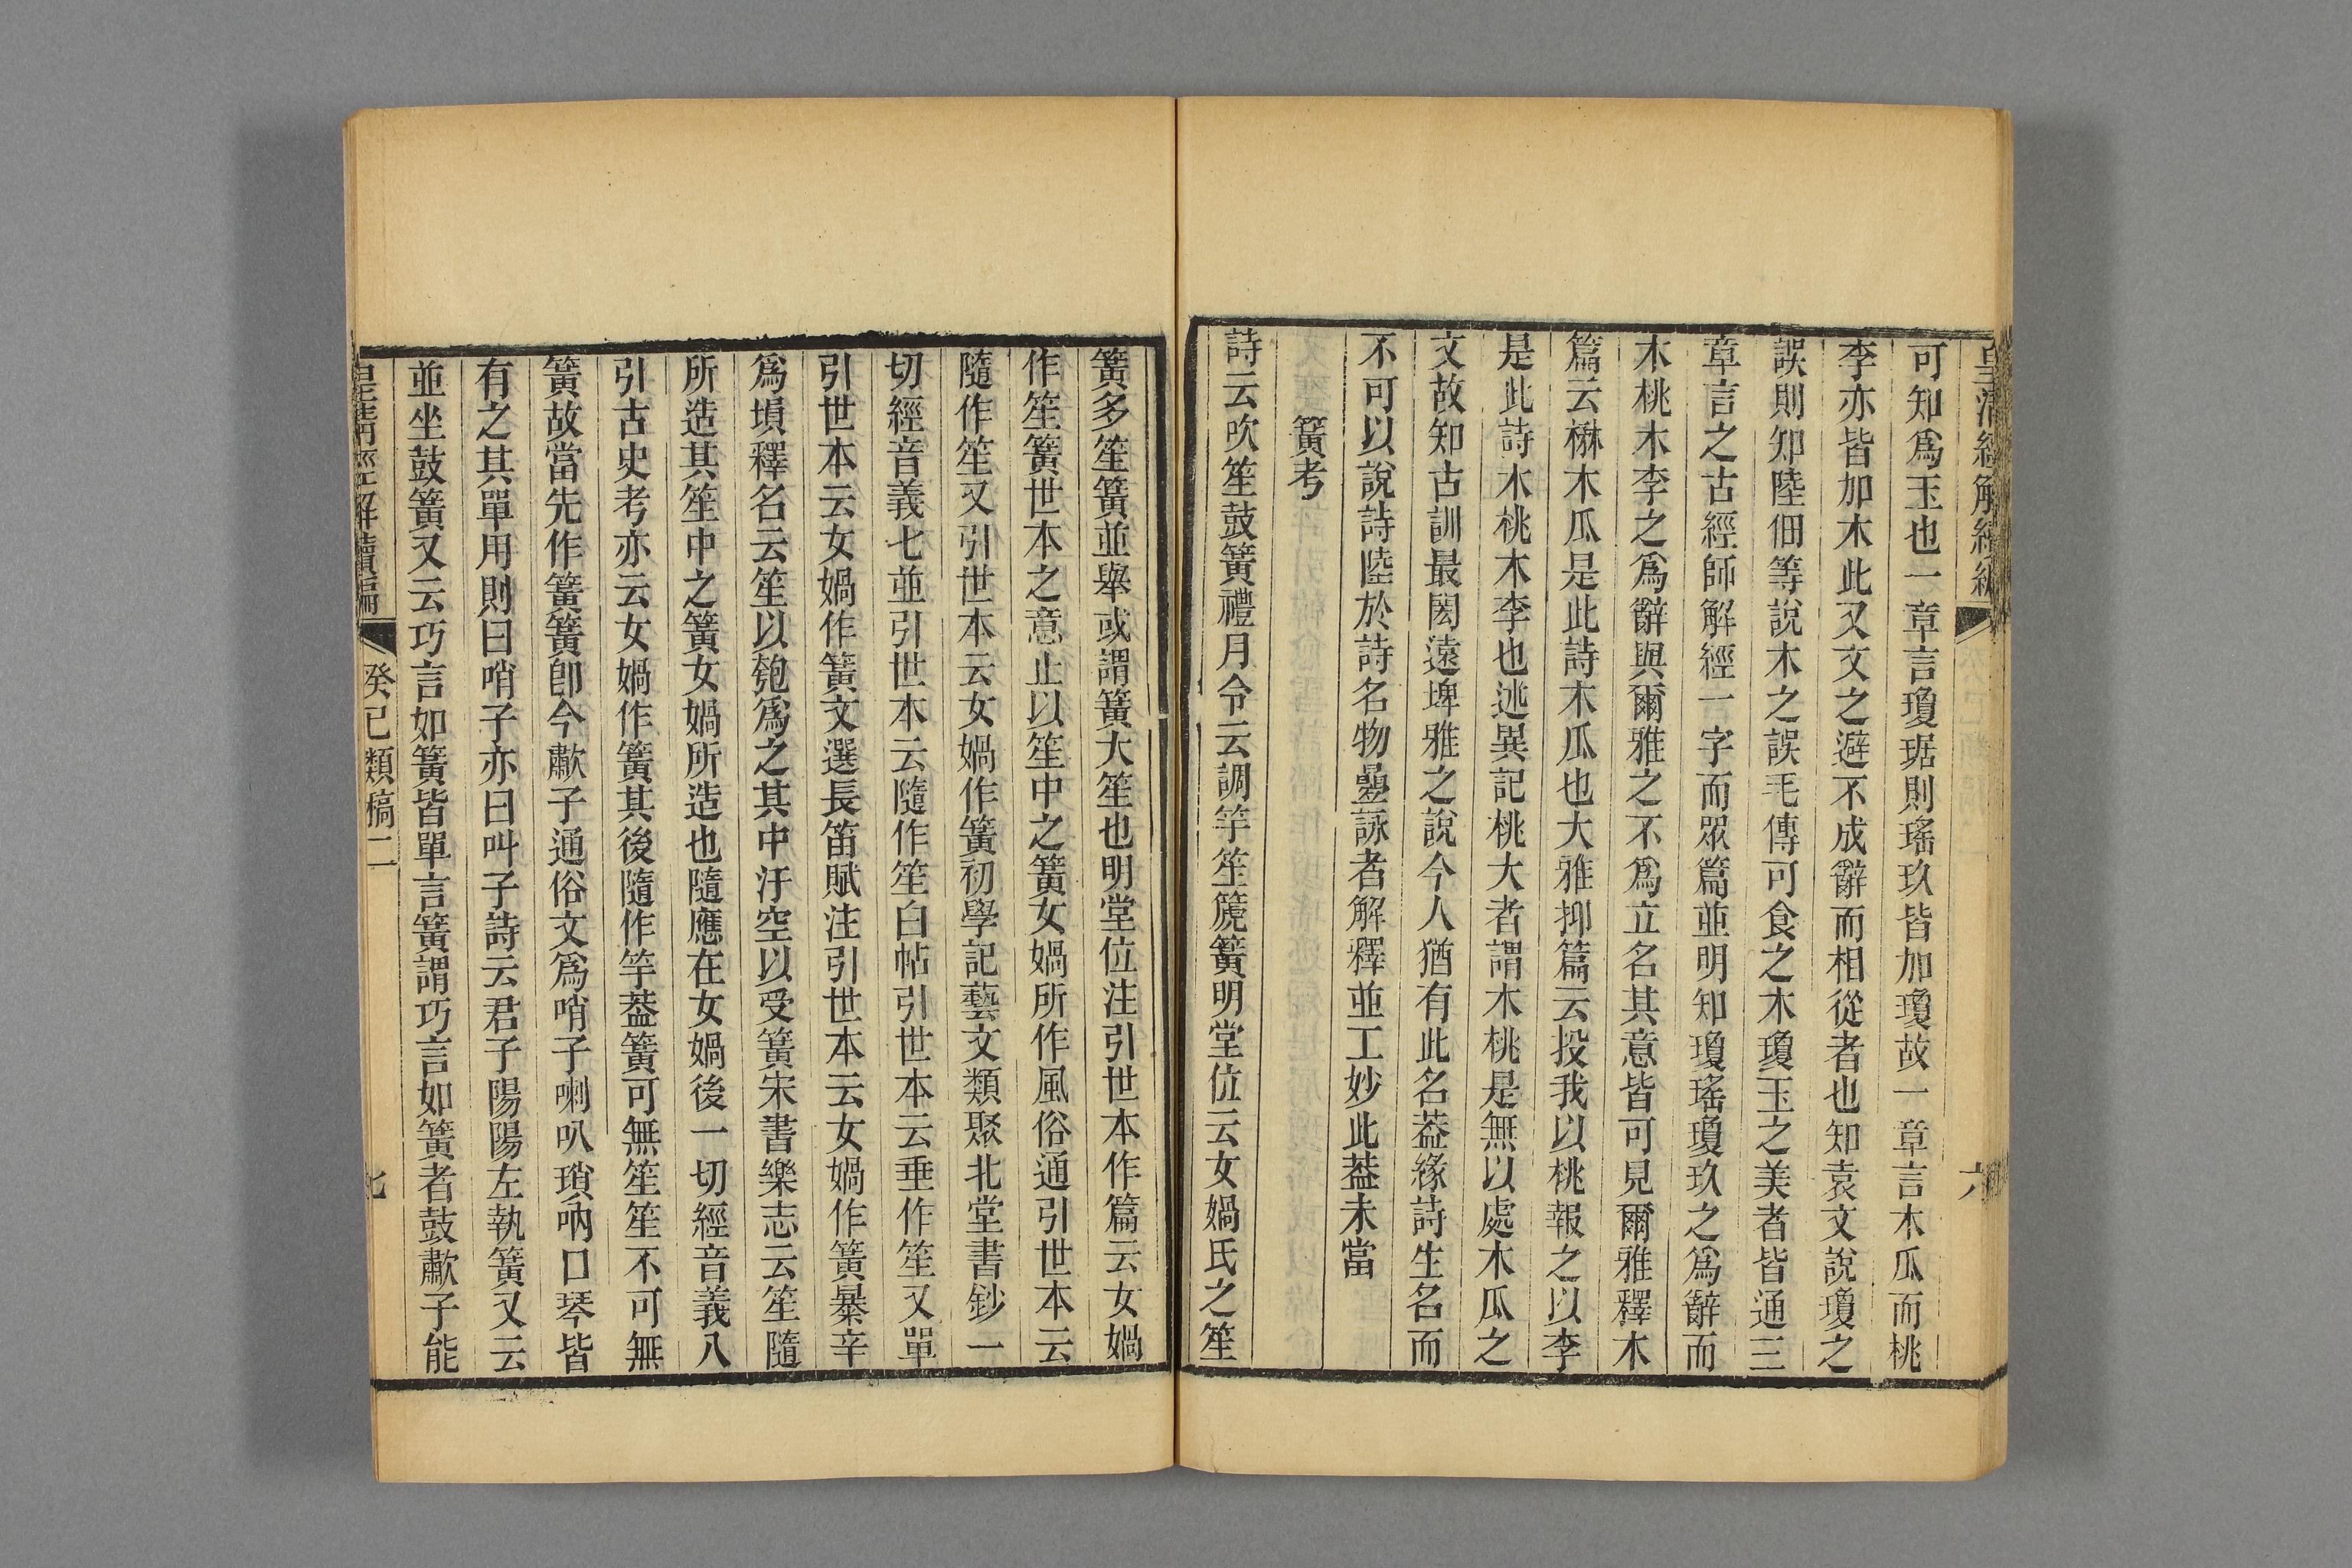 皇清經解續編
六
可知爲玉也一章言瓊琚則瑤玖皆加瓊故一章言木瓜而桃
李亦皆加木此又文之避不成辭而相從者也知袁文說瓊之
誤則知陸佃等說木之誤毛傳可食之木瓊玉之美者皆通三
章言之古經師解經一字而眾篇並明知瓊瑤瓊玖之爲辭而
木桃木李之爲辭與爾雅之不爲立名其意皆可見爾雅釋木
篇云楙木瓜是此詩木瓜也大雅抑篇云投我以桃報之以李
是此詩木桃木李也述異記桃大者謂木桃是無以處木瓜之
文故知古訓最閎遠埤雅之說今人猶有此名葢緣詩生名而
不可以說詩陸於詩名物曡詠者解釋並工妙此葢未當
簧考
詩云吹笙鼓簧禮月令云調竽笙箎簧明堂位云女媧氏之笙
簧多笙簧並舉或謂簧大笙也明堂位注引世本作篇云女媧
作笙簧世本之意止以笙中之簧女媧所作風俗通引世本云
隨作笙又引世本云女媧作簧初學記藝文類聚北堂書鈔一
切經音義七並引世本云隨作笙白帖引世本云垂作笙又單
引世本云女媧作簧文選長笛賦注引世本云女媧作簧暴辛
爲塤釋名云笙以匏爲之其中汙空以受簧宋書樂志云笙隨
所造其笙中之簧女媧所造也隨應在女媧後一切經音義八
引古史考亦云女媧作簧其後隨作竽葢簧可無笙笙不可無
簧故當先作簧簧卽今歗子通俗文爲哨子喇叭瑣吶口琴皆
有之其單用則曰哨子亦曰叫子詩云君子陽陽左執簧又云
並坐鼓簧又云巧言如簧皆單言簧謂巧言如簧者鼓歗子能
皇清經解續編
癸巳類稿二
七